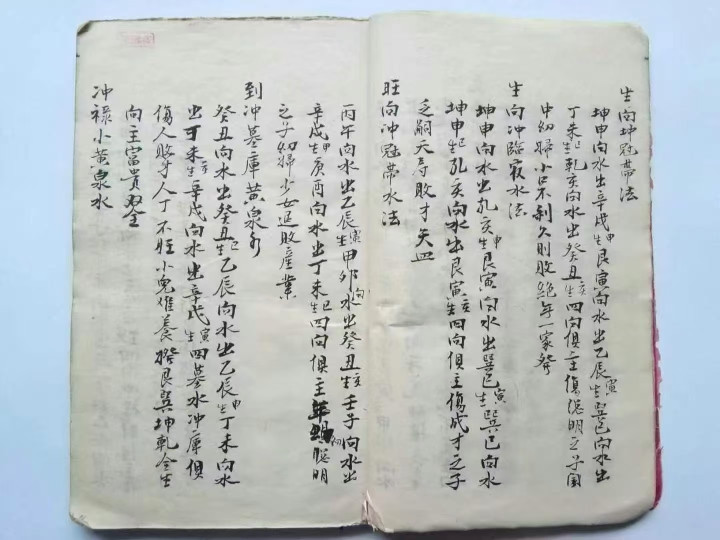 生向坤冠帶法
坤申向水出辛戌生申艮寅向水出乙辰生寅巽巳向水出
丁未起乾亥向水出癸丑生亥四向俱主傷聰明之子閨
中幼婦小口不利久則敗絕年一家發
生向冲臨官水法
坤申向水出乾亥生申艮寅向水出巽巳生寅巽巳向水
坤申起乾亥向水出艮寅生亥四向俱主傷成才之子
乏嗣夭壽敗才夭亡
旺向冲冠帶水法
丙午向水出乙辰生寅甲卯向水出癸丑生亥壬子向水出
辛戌生申庚酉向水出丁未生巳四向俱主年幼聰明
之子幼婦少女退敗產業
到冲墓庫黃泉水
癸丑向水出癸丑生巳乙辰向水出乙辰生申丁未向水
出丁未生亥辛戌向水出辛戌生寅四墓水冲庫俱
傷人敗才人丁不旺小兒难養 艮巽坤乾全生
向主富貴双全
冲祿小黃泉水